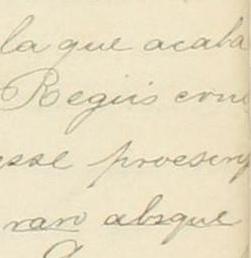 la que acaba
Regiis con
esse proesen
rari absque